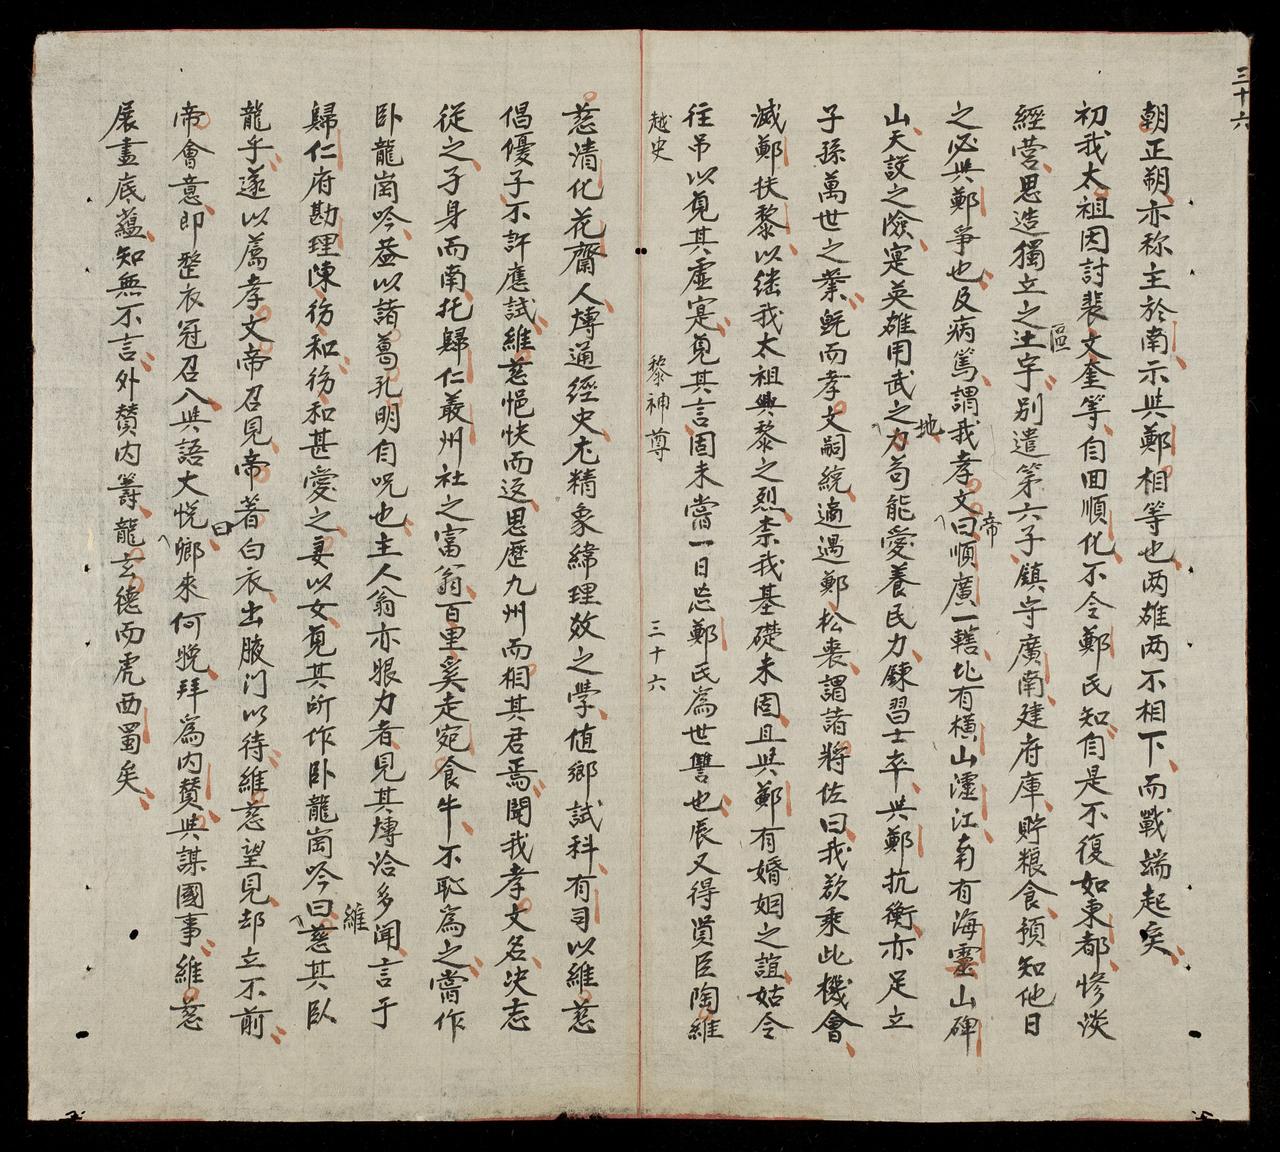 三十六
朝正朔亦称主於南示與鄭相等也两雄两不相下而戰端起矣
初我太祖因討裴文奎等自回順化不令鄭氏知自是不復如東都慘淡
經营思造獨立之區宇別遣第六子鎮守廣南建府庫貯粮食預知他日
之必與鄭爭也及病篤謂我孝文帝曰順廣一轄北有橫山𤅷江南有海雲山碑
山天設之險寔英雄用武之地苟能愛養民力錬習士卒與鄭抗衡亦足立
子孫萬世之業既而孝文嗣統適遇鄭松喪謂諸將佐曰我欲乘此機會
滅鄭扶黎以継我太祖興黎之烈柰我基礎未固且與鄭有婚姻之誼姑令
往吊以覓其虛寔覓其言固未嘗一日忘鄭氏為世讐也辰又得賢臣陶維
越史
黎神尊
三十六
慈清化花齋人慱通經史尤精象緯理效之學值鄉試科有司以維慈
倡優子不許應試維慈悒怏而返思歷九州而相其君焉聞我孝文名决志
從之孑身而南托歸仁叢州社之富翁百里奚走宛食牛不恥為之嘗作
卧龍崗吟盖以諸葛孔明自况也主人翁亦眼力者見其慱洽多聞言于
歸仁府勘理陳彷和彷和甚愛之妻以女覓其所作卧龍崗吟曰維慈其臥
龍乎遂以薦孝文帝召見帝著白衣出腋门以待維慈望見却立不前
帝會意即整衣冠召入與語大悦曰鄉來何晚拜為内贊與謀國事維慈
展盡底蘊知無不言外贊内籌龍玄德而虎西蜀矣